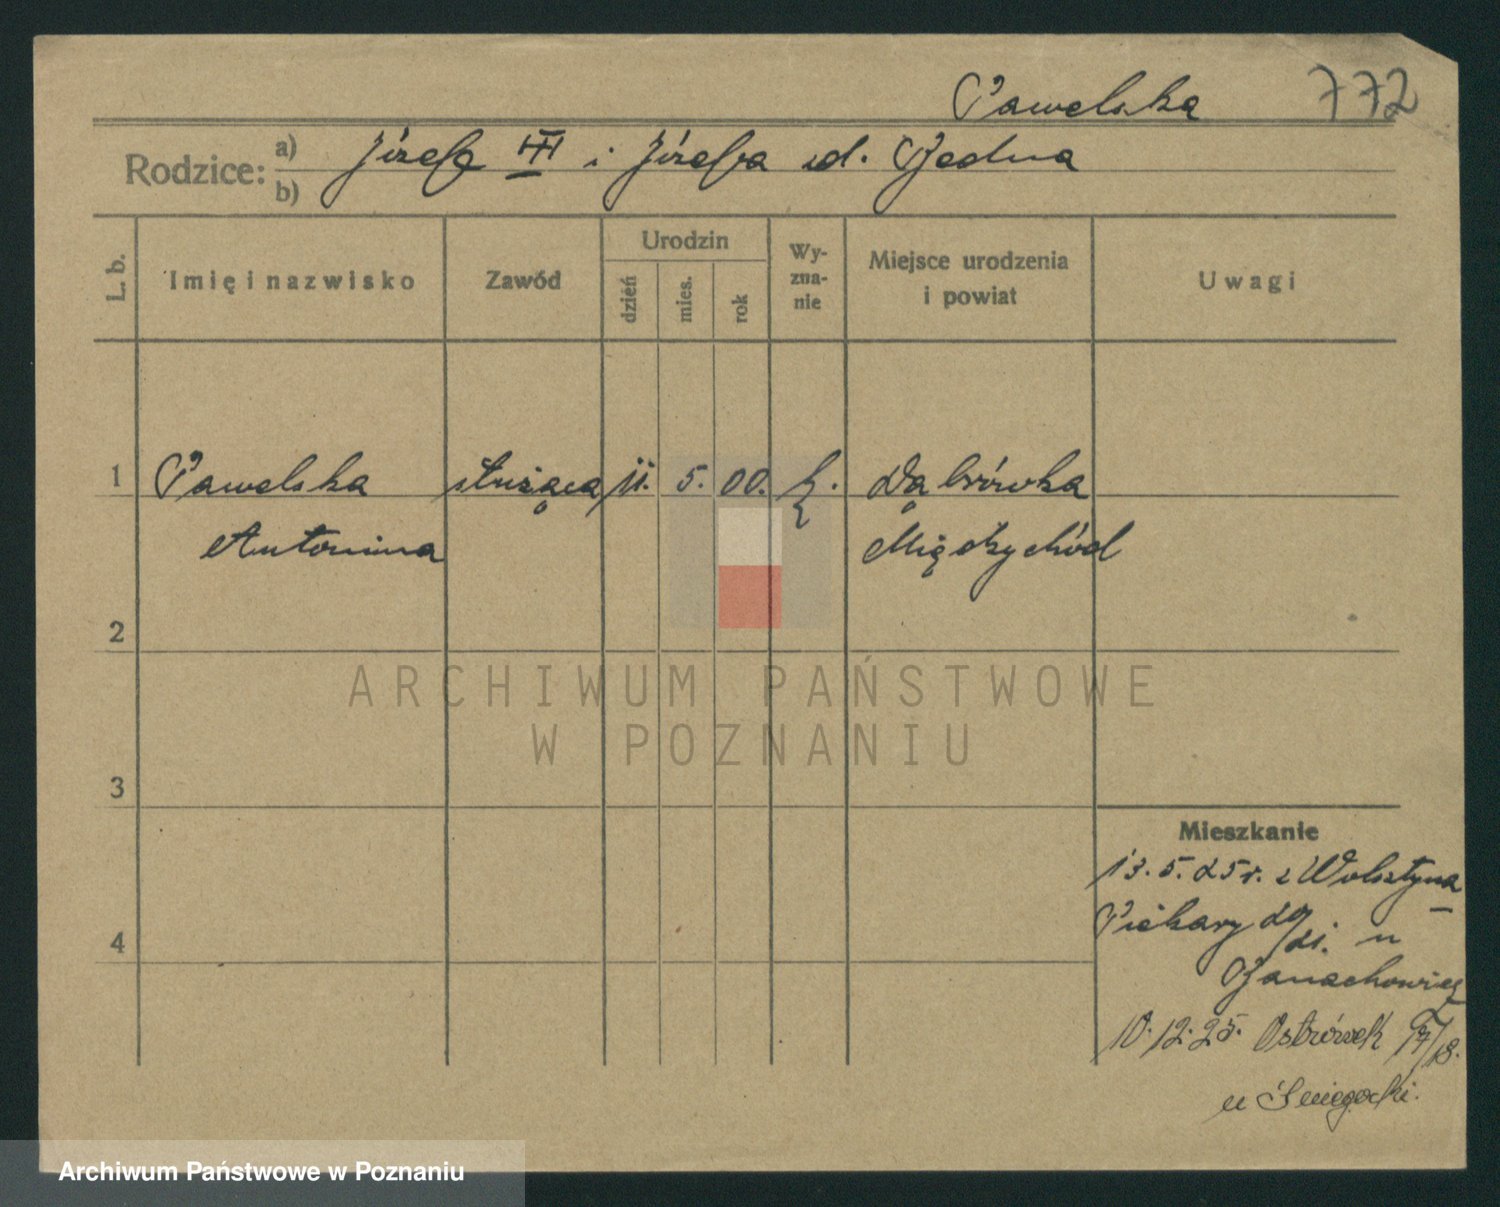 Pawelska 772
Rodzice: a) b) Józef III i Józefa
L. b. Imię i nazwisko Zawód Urodzin dzień mies. rok Wy-zna-nie Miejsce urodzenia i powiat Uwagi
1 Pawelska służąca 11. 5. 00. k. Dąbrówka
Antonina Międzychód
2
3
4
Mieszkanie
13.5.25 r. z Wolsztyna
Piekary 20/21. u
10.12.25. Ostrówek 17/18.
u Śniegocki.
ARCHIWUM PAŃSTWOWE
W POZNANIU
Archiwum Państwowe w Poznaniu